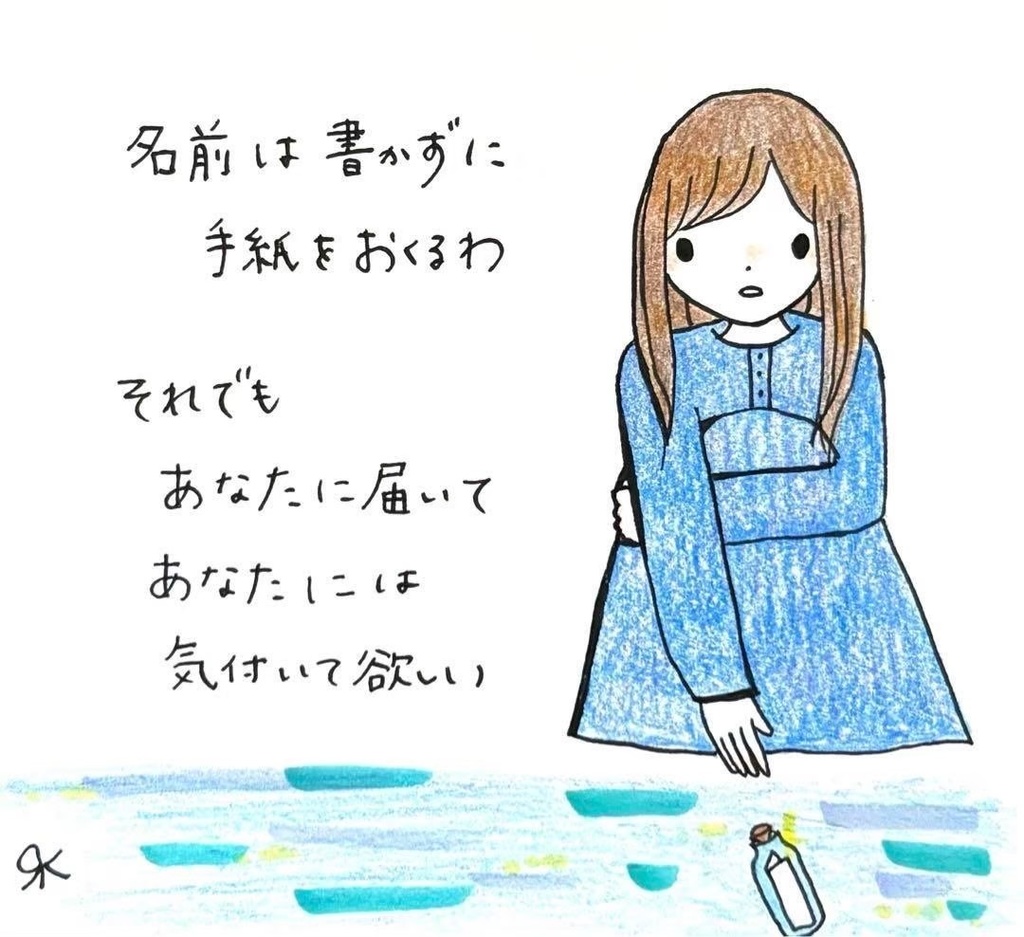 名前は書かずに
手紙をおくるわ
それでも
あなたに届いて
あなたには
気付いて欲しい